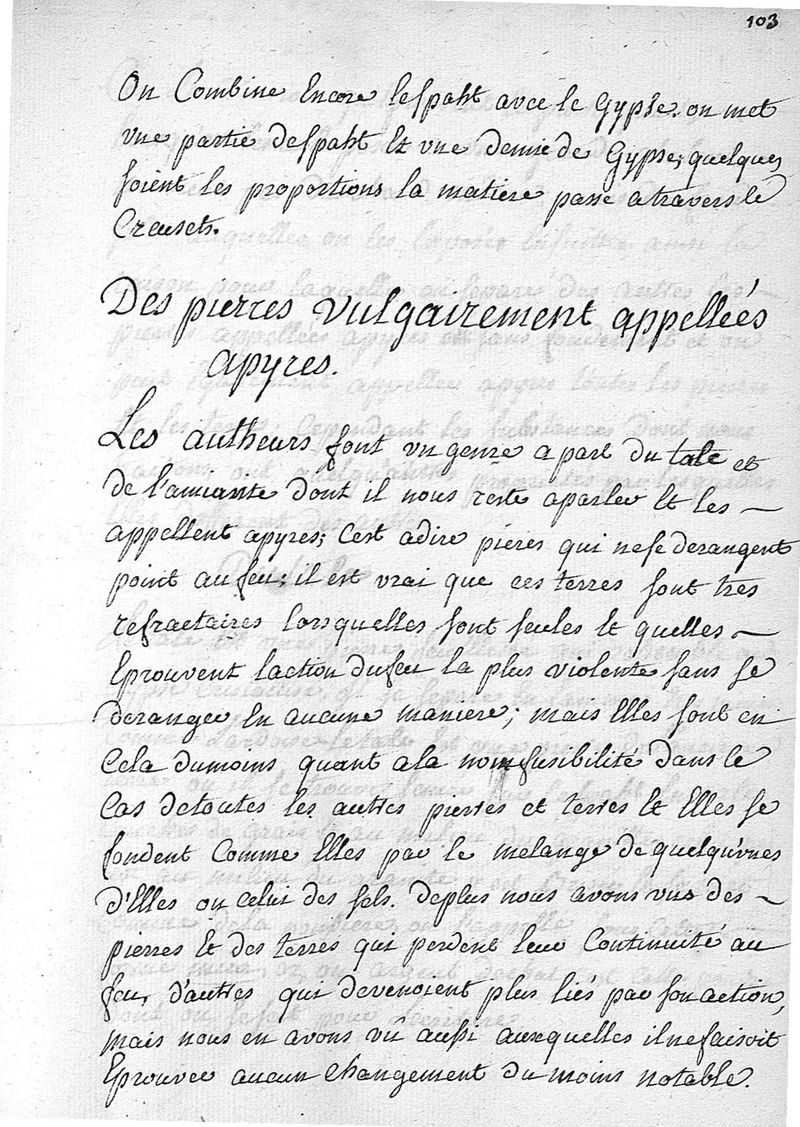 103
On Combine Encore lespaht avec le Gypse. on met
vne partie despaht Et vne demie de Gypse; quelques
soient les proportions la matiere passe a travers le
Creusets.
Des pierres vulgairement appelleés
apyres.
Les autheurs font vn genre a part du talc et
de l'amiante dont il nous reste aparler Et les –
appellent apyres; Cest adire pieres qui nese derangent
point au feu; il est vrai que ces terres sont tres
refractaires lorsquelles sont seules Et quelles –
Eprouvent laction dufeu la plus violente sans se
deranger En aucune maniere; mais Elles sont en
Cela dumoins, quant ala non fusibilité dans le
Cas detoutes les autres pierres et terres Et Elles se
fondent Comme Elles par le melange de quelqu'vnes
d'Elles ou celui des sels. deplus nous avons vus des –
pierres Et des terres qui perdent leur Continuité au
feu, d'autres qui devenoient plus liés par son action,
mais nous en avons vû aussi auxquelles il ne faisoit
Eprouver aucun changement du moins notable.